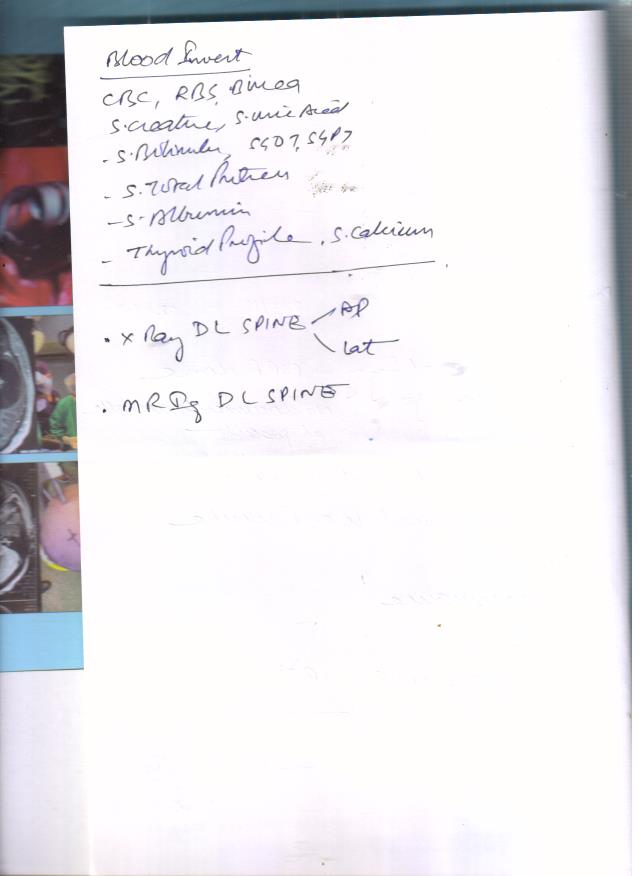 Blood Invest
CBC, RBS, B.urea
S.creatine, S.uric Acid
- S.Bilirubin, SGOT, SGPT
- S.Total Protien
- S.Albumin
- Thyroid Profile, S.Calcium
• X Ray DL SPINE AP
Lat
• MRI of DL SPINE